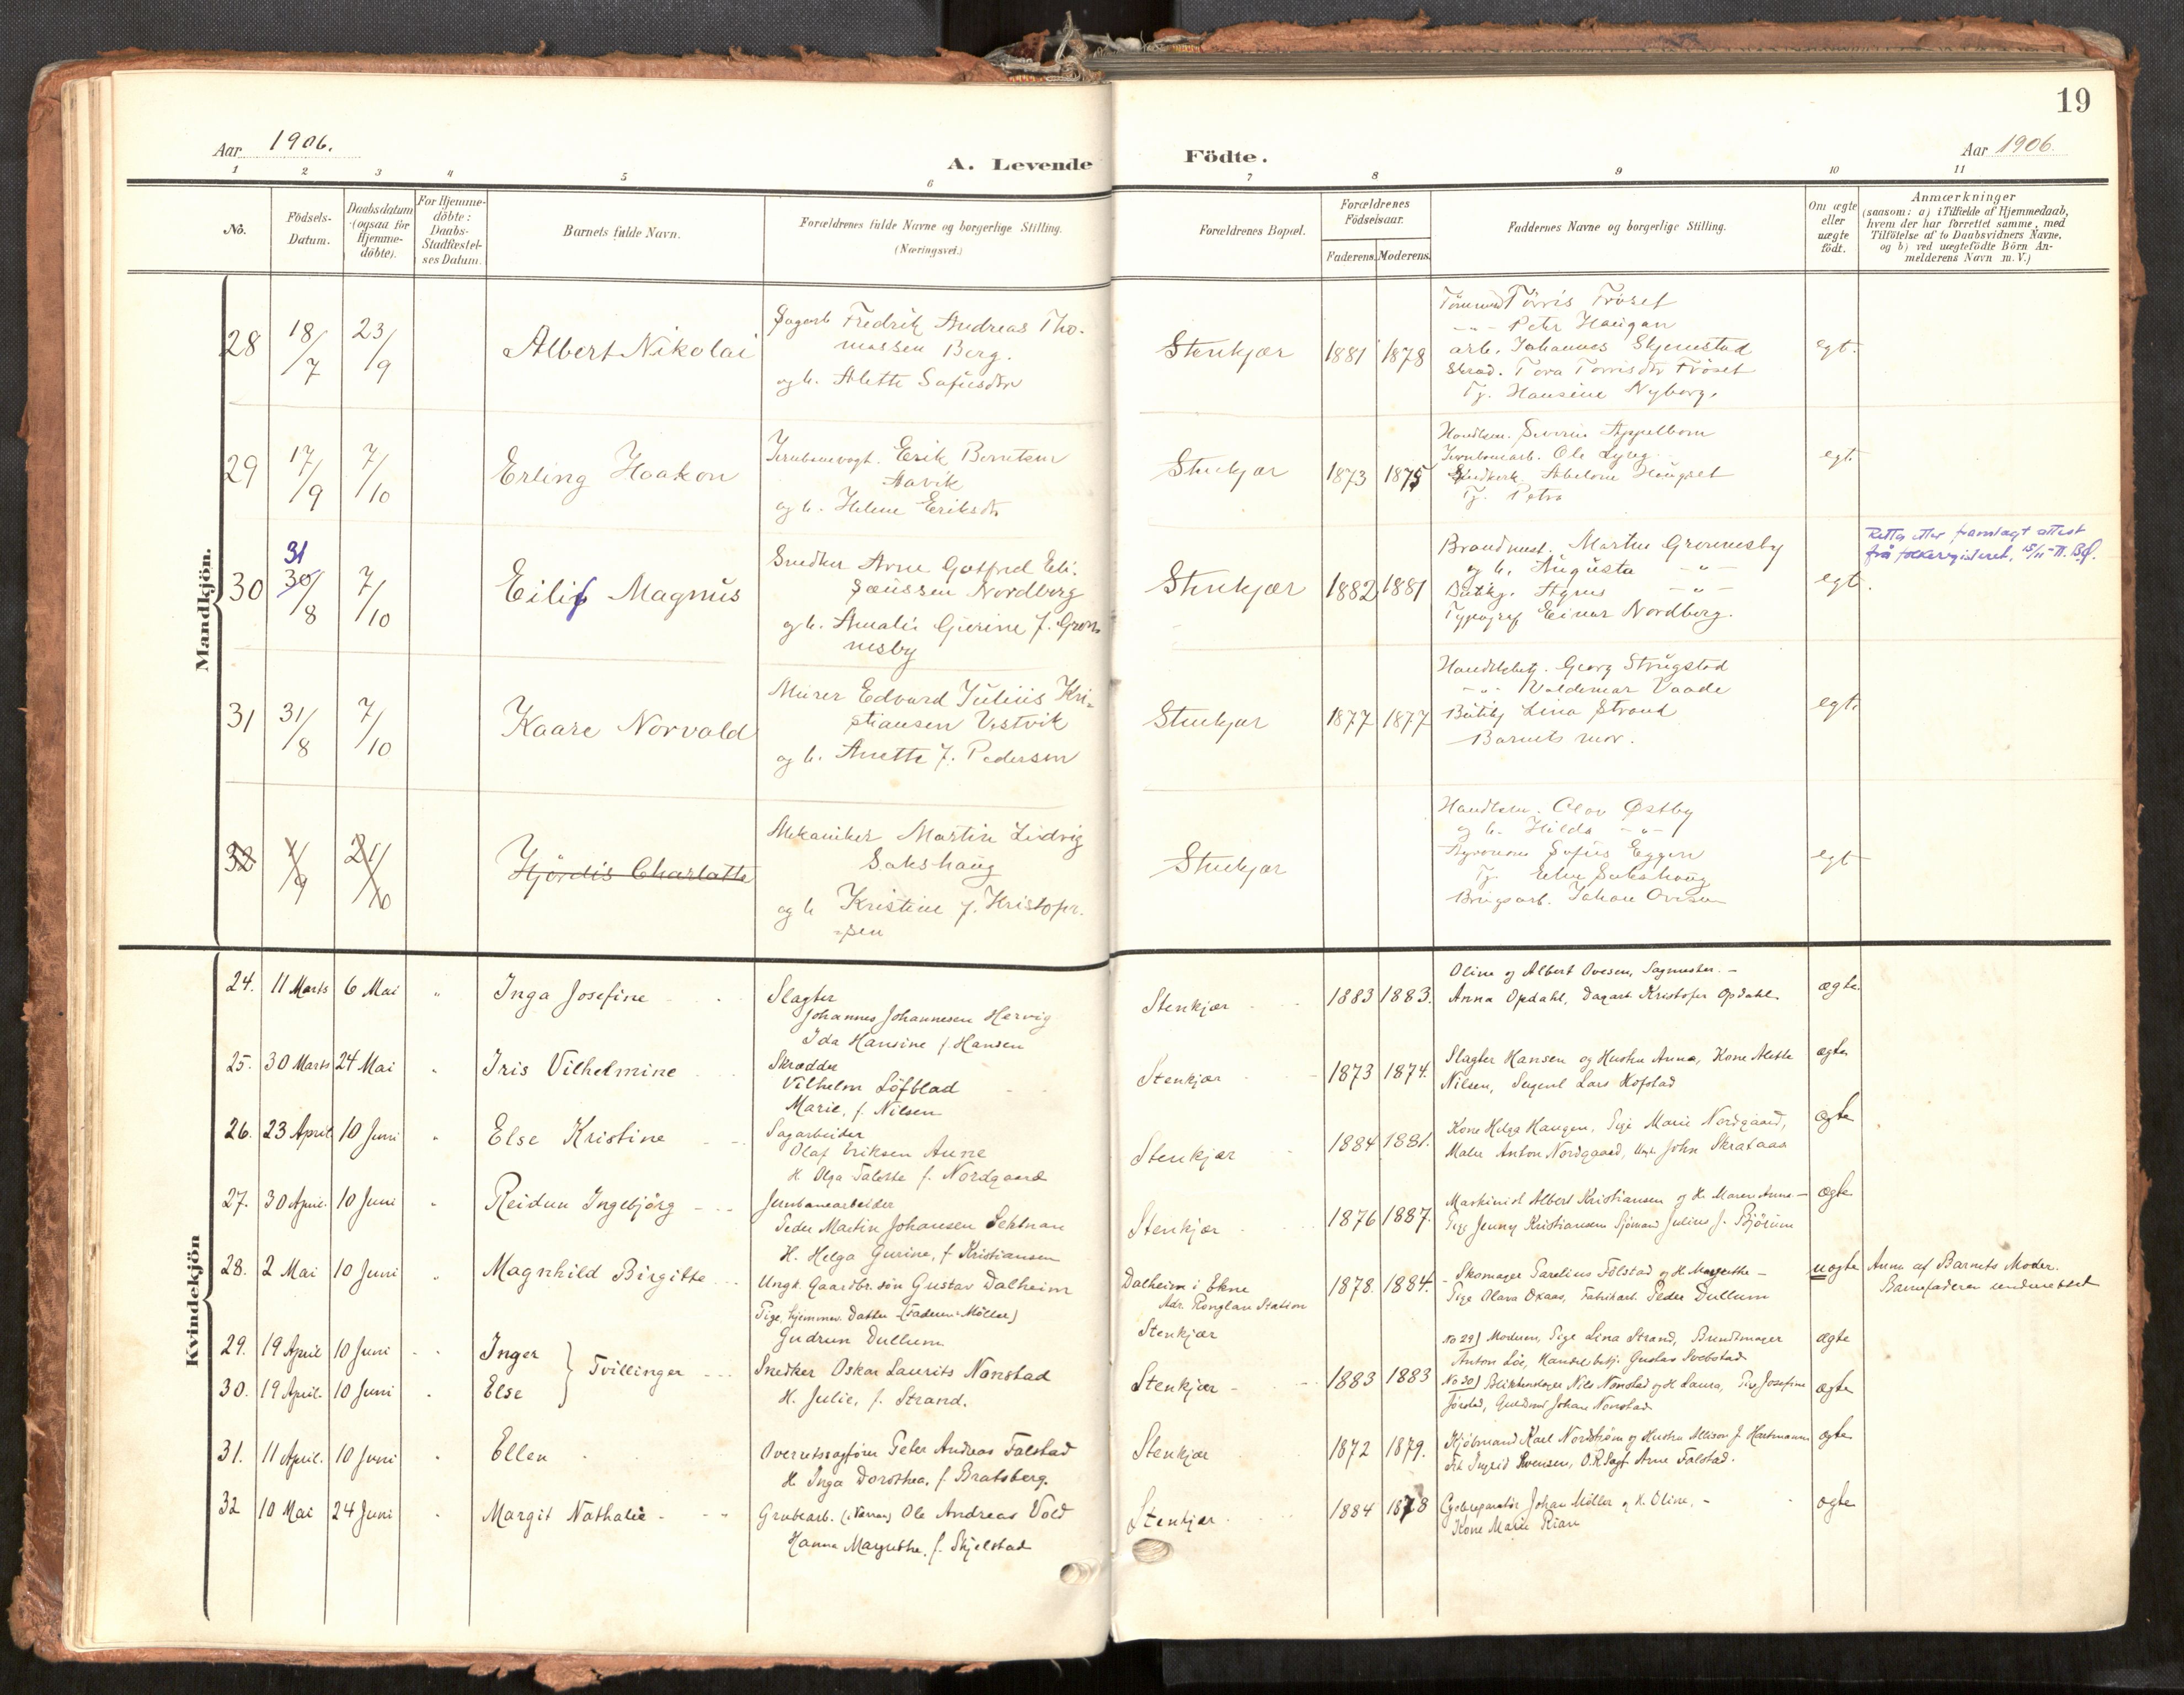 19
Aar 1906.
A. Levende Födte.
Aar 1906.
1 2 3 4 5 6 7 8 9 10 11
No.
Födsels-
Datum.
Daabsdatum
(ogsaa for
Hjemme-
döbte).
For Hjemme-
döbte:
Daabs-
Stadfæstel-
ses Datum.
Barnets fulde Navn.
Forældrenes fulde Navne og borgerlige Stilling.
(Næringsvei.)
Forældrenes Bopæl.
Forældrenes
Födselsaar.
Faderens. Moderens.
Faddernes Navne og borgerlige Stilling.
Om ægte
eller
uægte
födt.
Anmærkninger
(saasom: a) i Tilfælde af Hjemmedaab,
hvem der har forrettet samme, med
Tilföielse af to Daabsvidners Navne,
og b) ved uægtefödte Börn An-
melderens Navn m. V.)
Mandkjön.
28 18/7 23/9 Albert Nikolai
Fredrik Andreas Tho-
massen Berg.
og h. Alette Sofusdtr
Stenkjær 1881 1878
Törris Fröset
-"- Peter Haugan
arb. Johannes Skjenstad
Tora Torrisdtr Fröset
Pj. Hansine Nyborg.
egt.
29 17/9 7/10 Erling Haakon
Jernbanevogt. Erik Berntsen
Aavik
og h. Helene Eriksdtr
Stenkjær 1873 1875
Handlsm. Severin Appelbom
Jernbanearb. Ole Lyng
Abelone Haugset
Pj. Petra
egt.
30 31 30/8 7/10 Eilif Magnus
Snedker Arne Gotfred Eli-
sæussen Nordberg
og h. Amalie Gurine f. Grøn-
nesby
Stenkjær 1882 1881
Brandmest. Martin Grønnesby
og h. Augusta -"-
Butikj. Agnes -"-
Typograf Einar Nordberg.
egt.
Rettet etter framlagt attest
frå folkeregisteret,
31 31/8 7/10 Kaare Norvald
Murer Edvard Julius Kri-
stiansen Vestvik
og h. Anette f. Pedersen
Stenkjær 1877 1877
Handelsbetj. Georg Strugstad
-"- Valdemar Vaade
Butikj Lina Strand
Barnets mor.
egt.
32 1/9 21/10 Hjördis Charlotte
Mekaniker Martin Ludvig
Sakshaug
og h Kristine f. Kristofer-
sen
Stenkjær
Handlsm. Olav Østby
og h. Hilda -"-
Agronom Sofus Eggen
Pj. Elen Sakshaug
Brugsarb. Johan Ovesen
egt
Kvindekjön
24. 11 Marts 6 Mai " Inga Josefine
Slagter
Johannes Johannesen Hervig
Ida Hansine f. Hansen
Stenkjær 1883 1883.
Oline og Albert Ovesen, Sagmester. -
Anna Opdahl, Dagarb. Kristofer Opdahl.
ægte.
25. 30 Marts 24 Mai " Iris Vilhelmine
Skrædder
Vilhelm Löfblad
Marie, f. Nilsen
Stenkjær 1873 1874.
Slagter Hansen og Hustru Anna, Kone Alette
Nilsen, Lars Hofstad
ægte
26. 23 April 10 Juni " Else Kristine
Sagarbeider
Olaf Eriksen Aune
H. Olga Talette f. Nordgaard
Stenkjær 1884 1881.
Kone Helga Haugen, Pige Marie Nordgaard,
Maler Anton Nordgaard, Ungk. John Skrataas
ægte
27. 30 April. 10 Juni " Reidun Ingebjörg
Jernbanearbeider
Peder Martin Johansen Sehtnan
H. Helga Gurine, f. Kristiansen
Stenkjær 1876 1887.
Maskinist Albert Kristiansen og H. Maren Anna -
Pige Jenny Kristiansen Sjömand Julius J. Bjørum
ægte
28. 2 Mai 10 Juni " Magnhild Birgitte
Ungk. Gaardbr. sön Gustav Dalheim
Pige, hjemmev. Datter (Faderen: Möller)
Gudrun Dullum
Dalheim i Ekne
Adr. Ronglan Station
Stenkjær
1878. 1884.
Skomager Parelius Folstad og H. Margrethe -
Pige Olava Oxaas, Fabrikarb. Peder Dullum
uægte
Anm. af Barnets Moder.
Barnefaderen underrettet
29. 19 April 10 Juni " Inger
30. 19 April. 10 Juni " Else
Tvillinger
Snedker Oskar Laurits Nonstad
H. Julie, f. Strand.
Stenkjær 1883 1883
No 29) Moderen, Pige Lina Strand, Bundtmager
Anton Löe, Handelsbetj. Gustav Svebstad
No 30) Blikkenslager Nils Nonstad og H. Laura, Pige Josefine
Jörstad, Guldsmd Johan Nonstad
ægte
ægte
31. 11 April. 10 Juni " Ellen
Overretssagförer Peter Andreas Falstad
H. Inga Dorothea, f. Bratsberg.
Stenkjær 1872 1879.
Kjöbmand Karl Nordström og Hustru Allison f. Hartmann
Frk Ingrid Svensen, O.R.Sagf. Arne Falstad.
ægte
32 10 Mai 24 Juni " Margit Nathalie
Grubearb. Ole Andreas Vold
Hanna Margrethe, f. Skjelstad
Stenkjær 1884 1878
Cyclereparatör Johan Möller og H. Oline, -
Kone Marie Rian
ægte